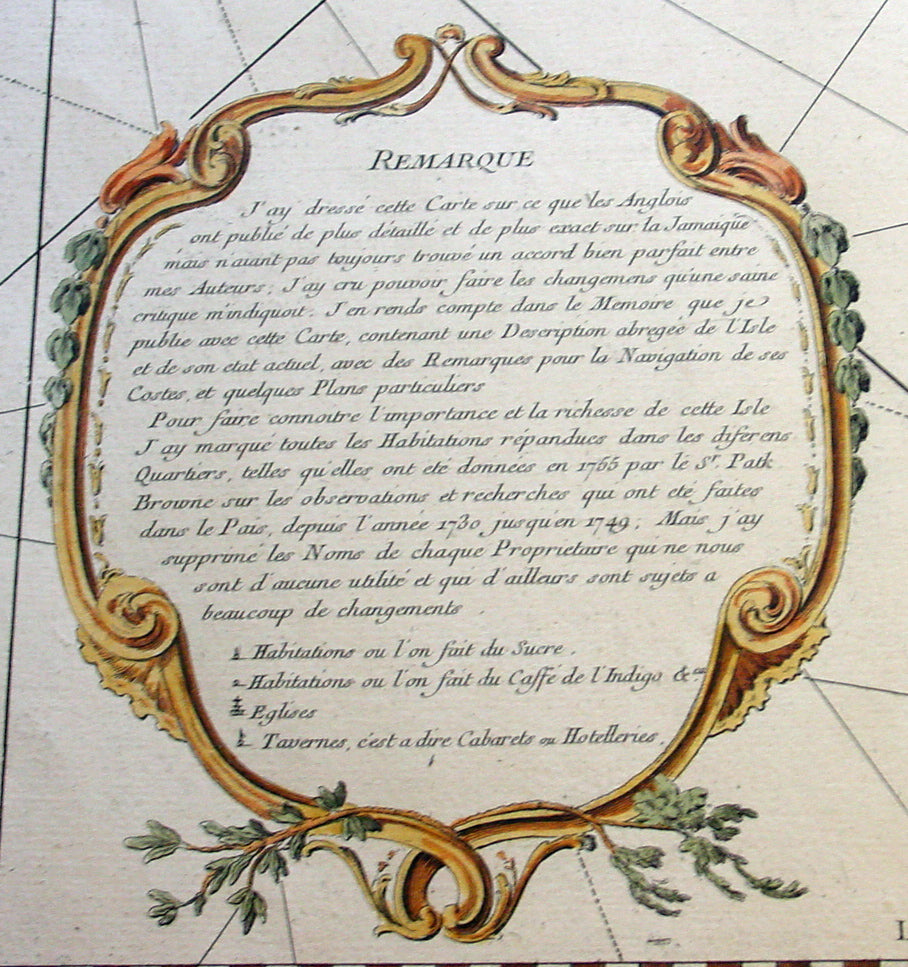 REMARQUE
J'ay dressé cette Carte sur ce que les Anglois
ont publié de plus détaillé et de plus exact sur la Jamaique
mais n'aiant pas toujours trouvé un accord bien parfait entre
mes Auteurs; J'ay cru pouvoir faire les changemens qu'une saine
critique m'indiquoit. J'en rends compte dans le Memoire que je
publie avec cette Carte, contenant une Description abregée de l'Isle
et de son etat actuel, avec des Remarques pour la Navigation de ses
Costes, et quelques Plans particuliers
Pour faire connoitre l'importance et la richesse de cette Isle
J'ay marqué toutes les Habitations répandues dans les diferens
Quartiers, telles qu'elles ont eté données en 1755 par le Sr. Patk
Browne sur les observations et recherches qui ont eté faites
dans le Pais, depuis l'année 1730 jusqu'en 1749; Mais j'ay
supprimé les Noms de chaque Proprietaire qui ne nous
sont d'aucune utilité et qui d'ailleurs sont sujets a
beaucoup de changements.
Habitations ou l'on fait du Sucre.
Habitations ou l'on fait du Caffé de l'Indigo &ca
Eglises
Tavernes, c'est a dire Cabarets ou Hotelleries.
L